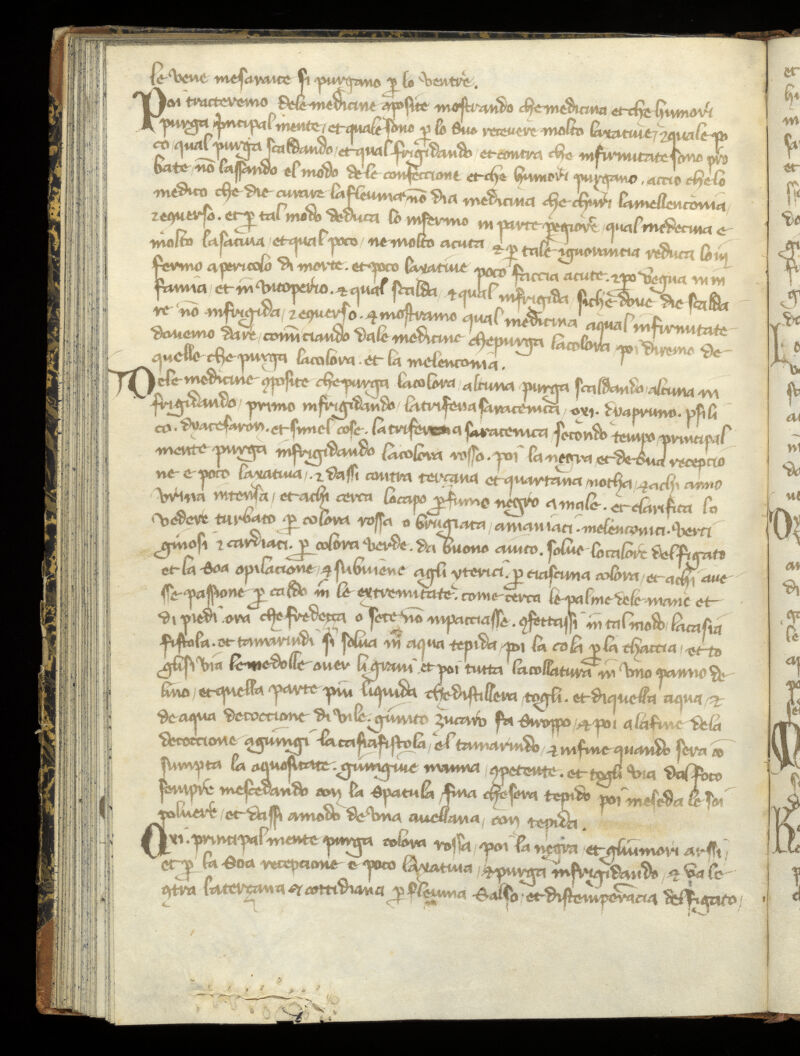 le vene mesaraice si purgano ꝑ lo ventre.
Poi tracteremo dele medicine ꝯposite mostrando che medicina et che humori
purga principal mente, et quale sono ꝑ lo suo recevere molto laxative, ⁊ quale po
co, qual purga scaldando, et qual frigidando, et contra che infirmitate sono pro
bate, nō lassando el modo dele confeccione et che humori purgano, accio che lo
medico che die curare la fleuma nō dia medicina che churi la mellenconia,
⁊ equerso. et ꝑ tal modo deduca lo infermo in parte pegiore, qual medecina e
molto lasativa, et qual poco, ne molto acuta, ⁊ ꝑ tale ignorancia reduca lo in
fermo a pericolo di morte. et poco laxative poco faccia acute. ⁊ po vegna in in
famia, et in vitoperio. ⁊ qual scalda, ⁊ qual infrigida, siche dove die scalda
re nō infrigida, ⁊ equerso. ⁊ mostramo qual medicina a qual infirmitate
dovemo dare, cominciando dale medicine che purga la colora, poi diremo de
quelle che purga la colora. et la melenconia.
Dele medicine ꝯposite che purga la colora, alcuna purga scaldando, alcuna in
frigidando, primo infrigidando, la trifera saracenica, oxi. dyapruno. psili
co. dyacesaron. et simel cose. la trifera saracenica secondo tempo principal
mente purga infrigidando la colora rosso. poi la negra et de sua recepcio
ne e poco laxativa, ⁊ dassi contra terçana et quartana notha, ⁊ achi anno
urina intensa, et achi cerca lo capo ꝑ fumo negro a male. et clarifica lo
vedere turbato ꝑ colora rossa o brugiata, a maniaci. melenconici. verti
ginosi ⁊ cardiaci. ꝑ colora verde. da buono aiuto. solve lo calore del figato
et la soa opilacione, ⁊ subviene agli yterici ꝑ ciascuna colora, et achi ave
sse passione ꝑ caldo in le extremitate. come cerca le palme dele mane et
di piedi, ora che fredeça o sete nō inpacciasse. ꝯfettassi in tal modo, la casia
fistola. et tamarindi si solva in aqua tepida, poi la cola ꝑ la chaccia, et to
glisi via le medolle over li grani, et poi tutta la collatura in uno panno de
lino, et quella parte piu liquida che distillera, togli. et di quella aqua, ⁊
de aqua decoccione di vile. giunto zucaro fa siroppo, ⁊ poi a la fine dela
decoccione agiungi la casiafistola, el tamarindo, ⁊ infine quando sera cō
sumpta la aquositate. giungive manna, ꝯpetente. et togli via dal foco
sempre mescedando con la spatula, fina che sera tepido poi meseda le soi
polvere, et dassi a modo de una avellana, con tepida.
Oxi. principal mente purga colora rossa, poi la negra, et gli umori arssi,
et ꝑ la soa recepcione e poco laxativa, ⁊ purga infrigidando, ⁊ va le
ꝯtra la terçana ⁊ cottidiana ꝑ fleuma salso, et distemperācia del figato,